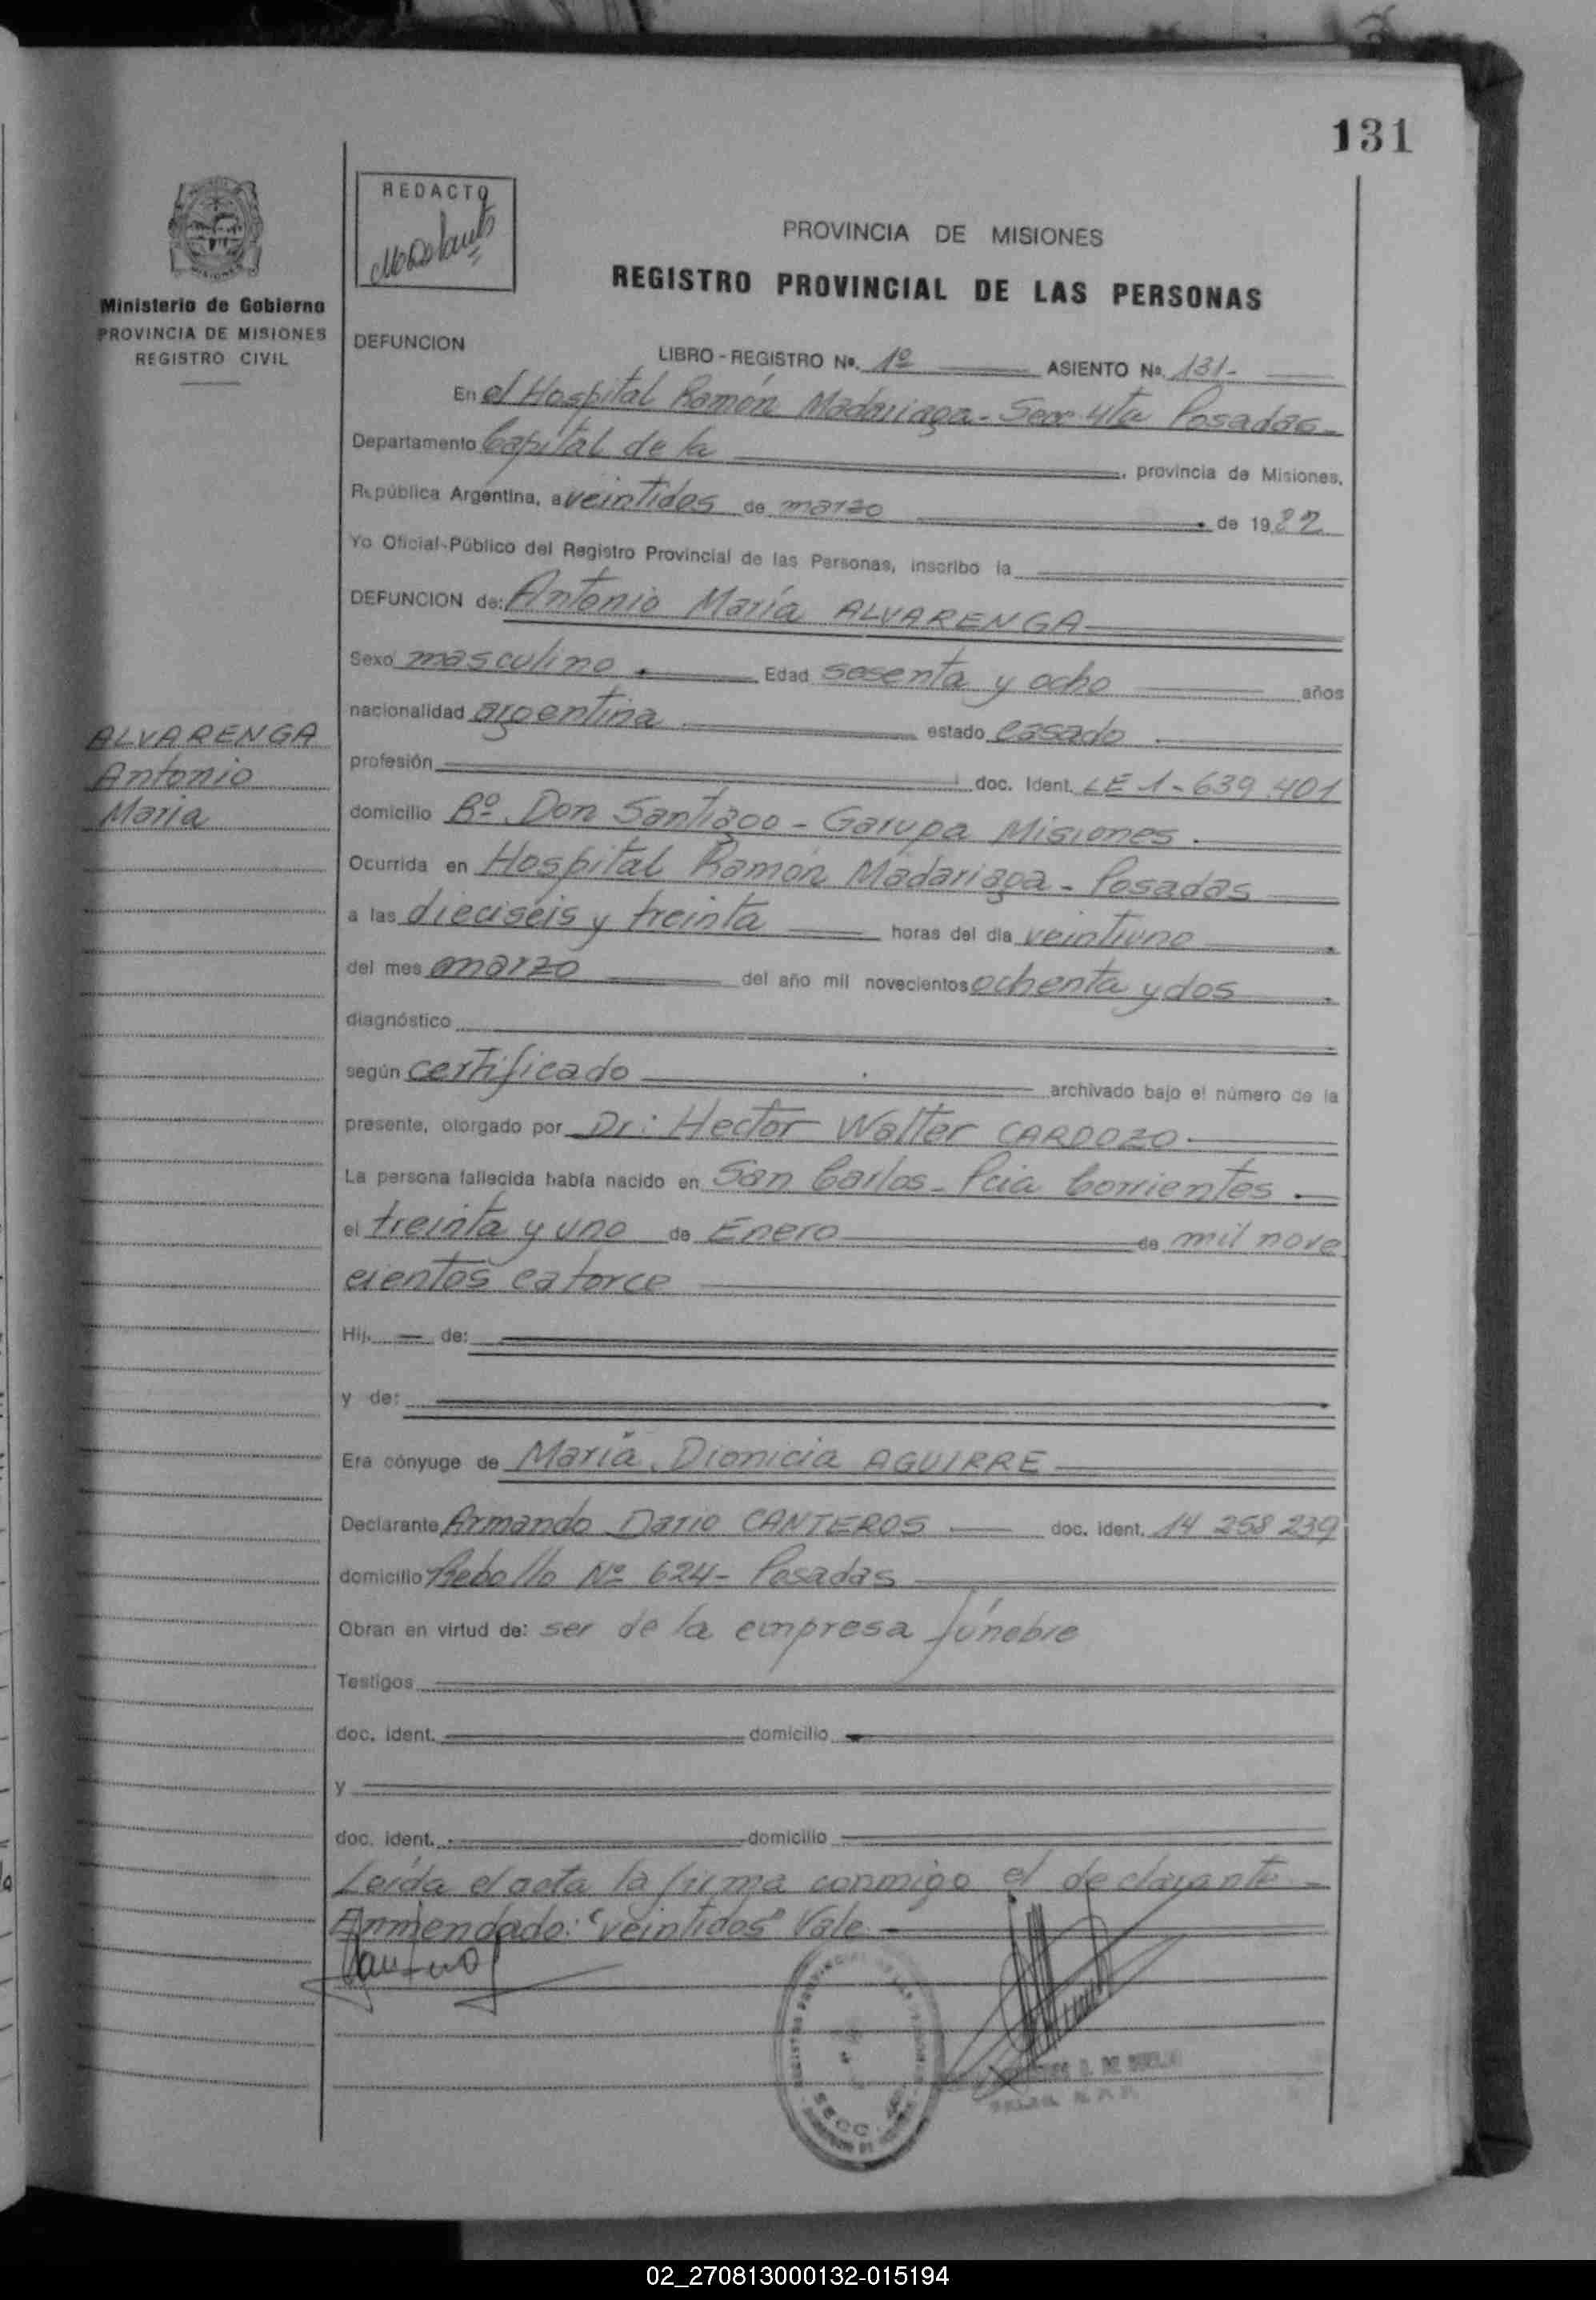 131
REDACTO
PROVINCIA DE MISIONES
REGISTRO PROVINCIAL DE LAS PERSONAS
MISIONES
Ministerio de Gobierno
PROVINCIA DE MISIONES
REGISTRO CIVIL
ALVARENGA
Antonio
Maria
DEFUNCION
LIBRO - REGISTRO Nº. 1º ASIENTO Nº. 131-
En el Hospital Ramón Madariaga - Secc 4ta Posadas-
Departamento Capital de la , provincia de Misiones,
República Argentina, a veintidos de marzo de 1982
Yo Oficial-Público del Registro Provincial de las Personas, inscribo la
DEFUNCION de: Antonio María ALVARENGA
Sexo masculino Edad sesenta y ocho años
nacionalidad argentina estado casado
profesión doc. Ident. LE 1-639.401
domicilio Bº. Don Santiago - Garupa Misiones.
Ocurrida en Hospital Ramón Madariaga - Posadas
a las dieciseis y treinta horas del día veintiuno
del mes marzo del año mil novecientos ochenta y dos
diagnóstico
según certificado archivado bajo el número de la
presente, otorgado por Dr: Hector Walter CARDOZO.
La persona fallecida había nacido en San Carlos - Pcia Corrientes.
el treinta y uno de Enero de mil nove
cientos catorce
Hij. de:
y de:
Era cónyuge de María Dionicia AGUIRRE
Declarante Armando Dario CANTEROS doc. ident. 14 258 239
domicilio Rebollo Nº 624- Posadas
Obran en virtud de: ser de la empresa fúnebre
Testigos
doc. ident. domicilio
y
doc. ident. domicilio
Leída el acta la firma conmigo el declarante-
Enmendado: "veintidos" Vale.-
02_270813000132-015194